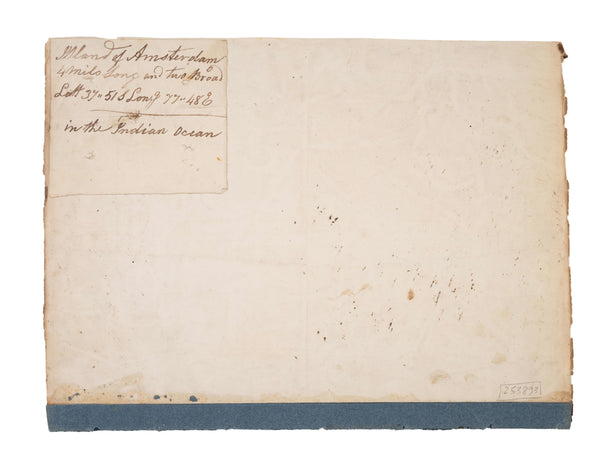 Island of Amsterdam
4 mils Long and two Broad
Latt 37" 51 S Long 77" 48 E
in the Indian Ocean
253893